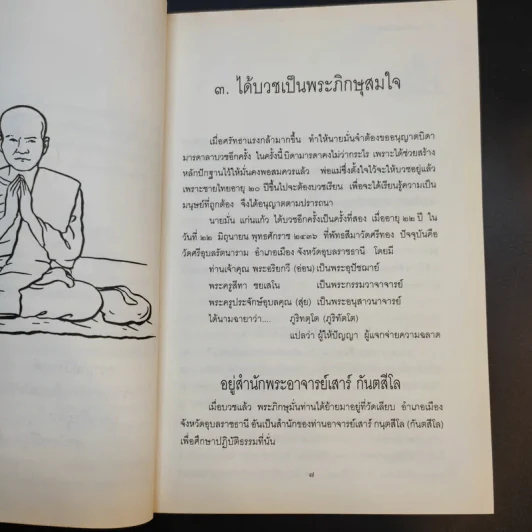 ๓. ได้บวชเป็นพระภิกษุสมใจ
เมื่อศรัทธาแรงกล้ามากขึ้น ทำให้นายมั่นจำต้องขออนุญาตบิดา
มารดาลาบวชอีกครั้ง ในครั้งนี้ บิดามารดาคงไม่ว่ากระไร เพราะได้ช่วยสร้าง
หลักปักฐานไว้ให้มั่นคงพอสมควรแล้ว พ่อแม่ซึ่งตั้งใจไว้จะให้บวชอยู่แล้ว
เพราะชายไทยอายุ ๒๐ ปีขึ้นไปจะต้องบวชเรียน เพื่อจะได้เรียนรู้ความเป็น
มนุษย์ที่ถูกต้อง จึงได้อนุญาตตามปรารถนา
นายมั่น แก่นแก้ว ได้บวชอีกครั้งเป็นครั้งที่สอง เมื่ออายุ ๒๒ ปี ใน
วันที่ ๒๒ มิถุนายน พุทธศักราช ๒๔๓๖ ที่พัทธสีมาวัดศรีทอง ปัจจุบันคือ
วัดศรีอุบลรัตนาราม อำเภอเมือง จังหวัดอุบลราชธานี โดยมี
ท่านเจ้าคุณ พระอริยกวี (อ่อน) เป็นพระอุปัชฌาย์
พระครูสีทา ชยเสโน เป็นพระกรรมวาจาจารย์
พระครูประจักษ์อุบลคุณ (สุ่ย) เป็นพระอนุสาวนาจารย์
ได้นามฉายาว่า.... ภูริทตฺโต (ภูริทัตโต)
แปลว่า ผู้ให้ปัญญา ผู้แจกจ่ายความฉลาด
อยู่สำนักพระอาจารย์เสาร์ กันตสีโล
เมื่อบวชแล้ว พระภิกษุมั่นท่านได้ย้ายมาอยู่ที่วัดเลียบ อำเภอเมือง
จังหวัดอุบลราชธานี อันเป็นสำนักของท่านอาจารย์เสาร์ กนฺตสีโล (กันตสีโล)
เพื่อศึกษาปฏิบัติธรรมที่นั่น
๘